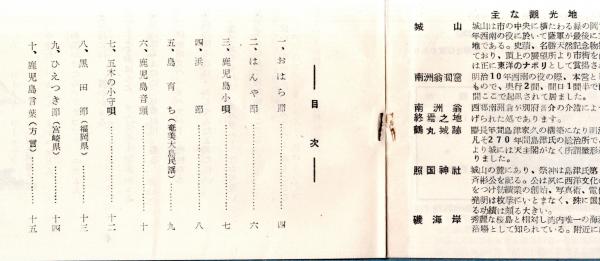 目次
一、おはら節…………四
二、はんや節…………六
三、鹿児島小唄…………七
四、浜節…………八
五、島育ち(奄美大島民謡)…………九
六、鹿児島音頭…………十
七、五木の小守唄…………十二
八、黒田節(福岡県)…………十三
九、ひえつき節(宮崎県)…………十四
十、鹿児島言葉(方言)…………十五
主な観光地
城山
城山は市の中央に横たわる緑の
年西南の役に於いて薩軍が最後に
地である。史蹟、名勝天然記念物
ており、頂上の展望所より市街を
は正に東洋のナポリとして賞
南洲翁洞窟
明治10年西南の役の際、本営と
もので、奥行2間、間口1間半で
間ここで起臥されて居ました。
南洲翁
終焉之地
西郷南洲翁が別府晋介の介錯によ
げられた処であります。
鶴丸城跡
慶長年間島津家久の構築になり明
凡そ270年間島津氏の居治所で
より城には天主閣がなく所謂
りました。
照国神社
城山の麓にあり、祭神は島津氏第
斉彬公を祀る。公は夙に西洋文化
をつけ紡績業の創始、写真術、電
発明は枚挙にいとまなく、殊に国
る功績は頗る大きい。
磯海岸
秀麗な桜島と相対し湾内唯一の海
浴場として知られている。附近に